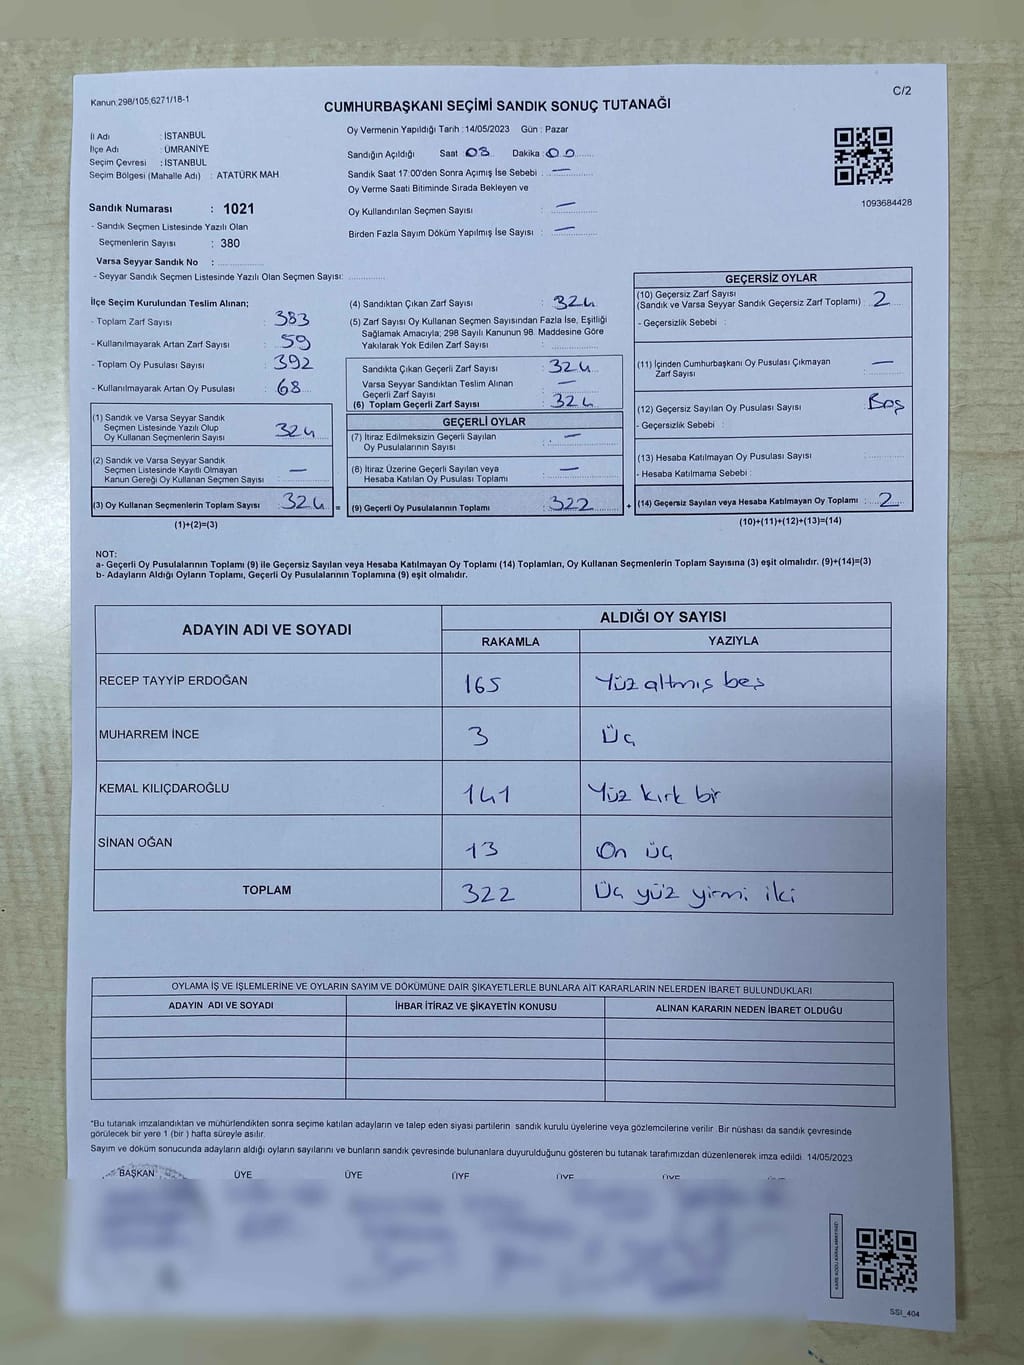 Kanun:298/105;6271/18-1
C/2
CUMHURBAŞKANI SEÇİMİ SANDIK SONUÇ TUTANAĞI
İl Adı : İSTANBUL
İlçe Adı : ÜMRANİYE
Seçim Çevresi : İSTANBUL
Seçim Bölgesi (Mahalle Adı) : ATATÜRK MAH
Sandık Numarası : 1021
- Sandık Seçmen Listesinde Yazılı Olan
Seçmenlerin Sayısı : 380
Varsa Seyyar Sandık No :
- Seyyar Sandık Seçmen Listesinde Yazılı Olan Seçmen Sayısı:
Oy Vermenin Yapıldığı Tarih :14/05/2023 Gün : Pazar
Sandığın Açıldığı Saat 08 Dakika : 00
Sandık Saat 17:00'den Sonra Açımış İse Sebebi : —
Oy Verme Saati Bitiminde Sırada Bekleyen ve
Oy Kullandırılan Seçmen Sayısı : —
Birden Fazla Sayım Döküm Yapılmış İse Sayısı : —
1093684428
İlçe Seçim Kurulundan Teslim Alınan;
- Toplam Zarf Sayısı : 383
- Kullanılmayarak Artan Zarf Sayısı : 59
- Toplam Oy Pusulası Sayısı : 392
- Kullanılmayarak Artan Oy Pusulası : 68
(1) Sandık ve Varsa Seyyar Sandık
Seçmen Listesinde Yazılı Olup
Oy Kullanan Seçmenlerin Sayısı : 324
(2) Sandık ve Varsa Seyyar Sandık
Seçmen Listesinde Kayıtlı Olmayan
Kanun Gereği Oy Kullanan Seçmen Sayısı : —
(3) Oy Kullanan Seçmenlerin Toplam Sayısı : 324 =
(1)+(2)=(3)
(4) Sandıktan Çıkan Zarf Sayısı : 324
(5) Zarf Sayısı Oy Kullanan Seçmen Sayısından Fazla İse, Eşitliği
Sağlamak Amacıyla; 298 Sayılı Kanunun 98. Maddesine Göre
Yakılarak Yok Edilen Zarf Sayısı :
Sandıkta Çıkan Geçerli Zarf Sayısı : 324
Varsa Seyyar Sandıktan Teslim Alınan
Geçerli Zarf Sayısı : —
(6) Toplam Geçerli Zarf Sayısı : 324
GEÇERLİ OYLAR
(7) İtiraz Edilmeksizin Geçerli Sayılan
Oy Pusulalarının Sayısı : —
(8) İtiraz Üzerine Geçerli Sayılan veya
Hesaba Katılan Oy Pusulası Toplamı : —
(9) Geçerli Oy Pusulalarının Toplamı : 322 +
GEÇERSİZ OYLAR
(10) Geçersiz Zarf Sayısı
(Sandık ve Varsa Seyyar Sandık Geçersiz Zarf Toplamı) : 2
- Geçersizlik Sebebi :
(11) İçinden Cumhurbaşkanı Oy Pusulası Çıkmayan
Zarf Sayısı : —
(12) Geçersiz Sayılan Oy Pusulası Sayısı : Boş
- Geçersizlik Sebebi :
(13) Hesaba Katılmayan Oy Pusulası Sayısı :
- Hesaba Katılmama Sebebi :
(14) Geçersiz Sayılan veya Hesaba Katılmayan Oy Toplamı : 2
(10)+(11)+(12)+(13)=(14)
NOT:
a- Geçerli Oy Pusulalarının Toplamı (9) ile Geçersiz Sayılan veya Hesaba Katılmayan Oy Toplamı (14) Toplamları, Oy Kullanan Seçmenlerin Toplam Sayısına (3) eşit olmalıdır. (9)+(14)=(3)
b- Adayların Aldığı Oyların Toplamı, Geçerli Oy Pusulalarının Toplamına (9) eşit olmalıdır.
ADAYIN ADI VE SOYADI
ALDIĞI OY SAYISI
RAKAMLA YAZIYLA
RECEP TAYYİP ERDOĞAN 165 Yüz altmış beş
MUHARREM İNCE 3 Üç
KEMAL KILIÇDAROĞLU 141 Yüz kırk bir
SİNAN OĞAN 13 On üç
TOPLAM 322 Üç yüz yirmi iki
OYLAMA İŞ VE İŞLEMLERİNE VE OYLARIN SAYIM VE DÖKÜMÜNE DAİR ŞİKAYETLERLE BUNLARA AİT KARARLARIN NELERDEN İBARET BULUNDUKLARI
ADAYIN ADI VE SOYADI İHBAR İTİRAZ VE ŞİKAYETİN KONUSU ALINAN KARARIN NEDEN İBARET OLDUĞU
"Bu tutanak imzalandıktan ve mühürlendikten sonra seçime katılan adayların ve talep eden siyasi partilerin sandık kurulu üyelerine veya gözlemcilerine verilir. Bir nüshası da sandık çevresinde
görülecek bir yere 1 (bir ) hafta süreyle asılır.
Sayım ve döküm sonucunda adayların aldığı oyların sayılarını ve bunların sandık çevresinde bulunanlara duyurulduğunu gösteren bu tutanak tarafımızdan düzenlenerek imza edildi. 14/05/2023
BAŞKAN ÜYE ÜYE ÜYE ÜYE ÜYE
SSI_404